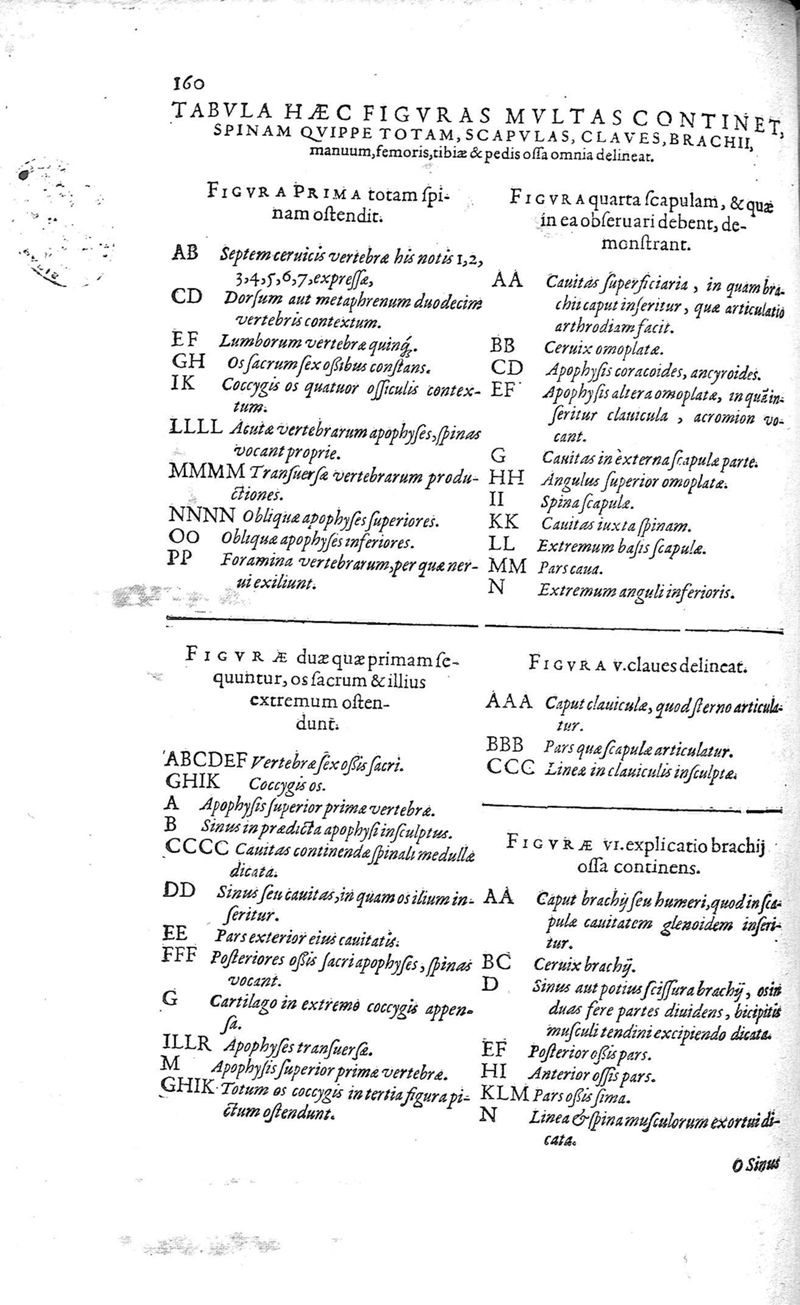 160
TABVLA HÆC FIGVRAS MVLTAS CONTINET,
SPINAM QVIPPE TOTAM, SCAPVLAS, CLAVES, BRACHII,
manuum, femoris, tibiæ & pedis ossa omnia delineat.
FIGVRA PRIMA totam spi-
nam ostendit.
AB Septem ceruicis vertebræ his notis 1, 2,
3, 4, 5, 6, 7, expressæ,
CD Dorsum aut metaphrenum duodecim
vertebris contextum.
EF Lumborum vertebræ quinq;.
GH Os sacrum sex ossibus constans.
IK Coccygis os quatuor officulis contex-
tum.
LLLL Acutæ vertebrarum apophyses, spinas
vocant proprie.
MMMM Transuersæ vertebrarum produ-
ctiones.
NNNN Obliquæ apophyses superiores.
OO Obliquæ apophyses inferiores.
PP Foramina vertebrarum, per quæ ner-
ui exiliunt.
FIGVRÆ duæ quæ primam se-
quuntur, os sacrum & illius
extremum osten-
dunt.
ABCDEF Vertebræ sex ossis sacri.
GHIK Coccygis os.
A Apophysis superior primæ vertebræ.
B Sinus in prædicta apophysi insculptus.
CCCC Cauitas continendæ spinali medullæ
dicata.
DD Sinus seu cauitas, in quam os ilium in-
seritur.
EE Pars exterior eius cauitatis.
FFF Posteriores ossis sacri apophyses, spinas
vocant.
G Cartilago in extremo coccygis appen-
sa.
ILLR Apophyses transuersæ.
M Apophysis superior primæ vertebræ.
GHIK Totum os coccygis in tertia figura pi-
ctum ostendunt.
FIGVRA quarta scapulam, & quæ
in ea obseruari debent, de-
monstrant.
AA Cauitas superficiaria, in quam bra-
chii caput inseritur, quæ articulatio
arthrodiam facit.
BB Ceruix omoplatæ.
CD Apophysis coracoides, ancyroides.
EF Apophysis altera omoplatæ, in quā in-
seritur clauicula, acromion vo-
cant.
G Cauitas in externa scapulæ parte.
HH Angulus superior omoplatæ.
II Spina scapulæ.
KK Cauitas iuxta spinam.
LL Extremum basis scapulæ.
MM Pars caua.
N Extremum anguli inferioris.
FIGVRA V. claues delineat.
AAA Caput clauiculæ, quod sterno articula-
tur.
BBB Pars quæ scapulæ articulatur.
CCC Lineæ in clauiculis insculptæ.
FIGVRÆ VI. explicatio brachij
ossa continens.
AA Caput brachij seu humeri, quod in sca-
pulæ cauitatem glenoidem inseri-
tur.
BC Ceruix brachij.
D Sinus aut potius scissura brachij, os in
duas fere partes diuidens, bicipitis
musculi tendini excipiendo dicata.
EF Posterior ossis pars.
HI Anterior ossis pars.
KLM Pars ossis sima.
N Linea & spina musculorum exortui di-
cata.
O Sinus